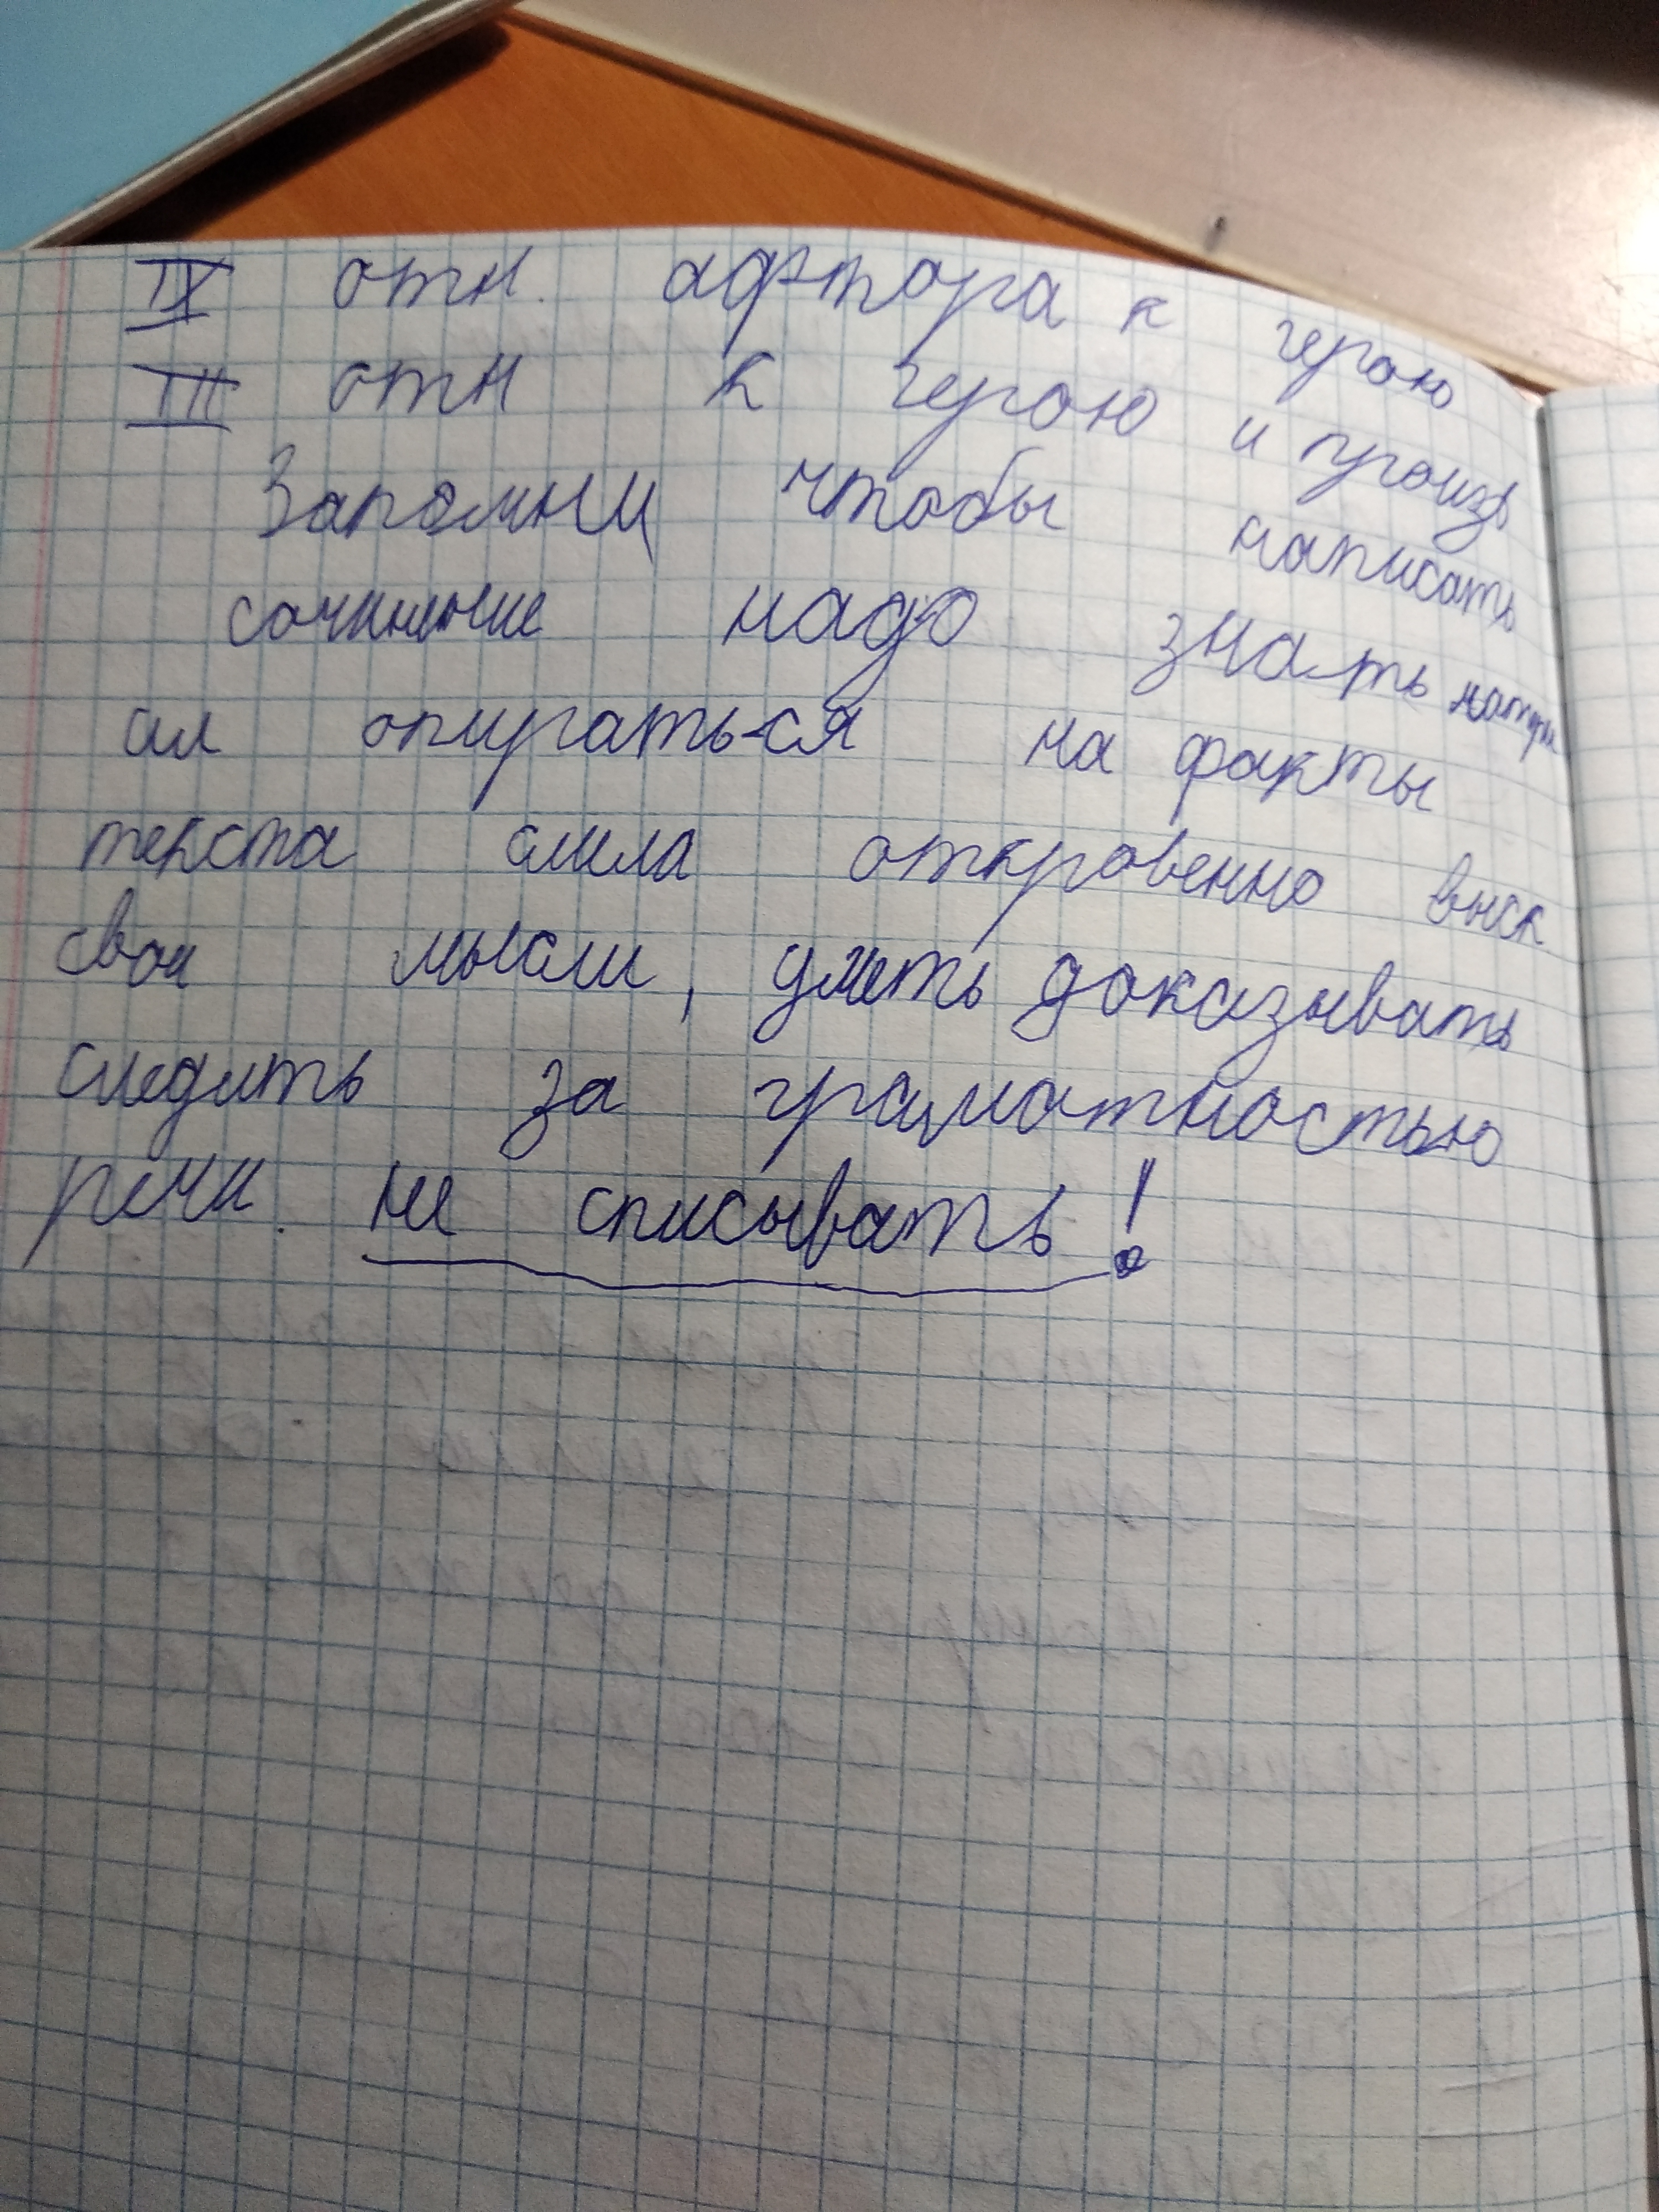 IX отн. афтора к герою
III отн к герою и произв
Запомни чтобы написать
сочинение надо знать
ал опираться на факты
текста смела откровенно выск
свои мысли, уметь доказывать
следить за грамматностью
речи. не списывать!